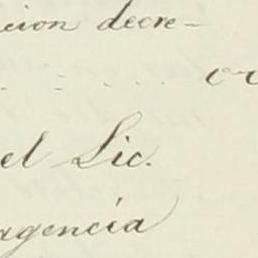 cion decre-
el Lic.
agencia